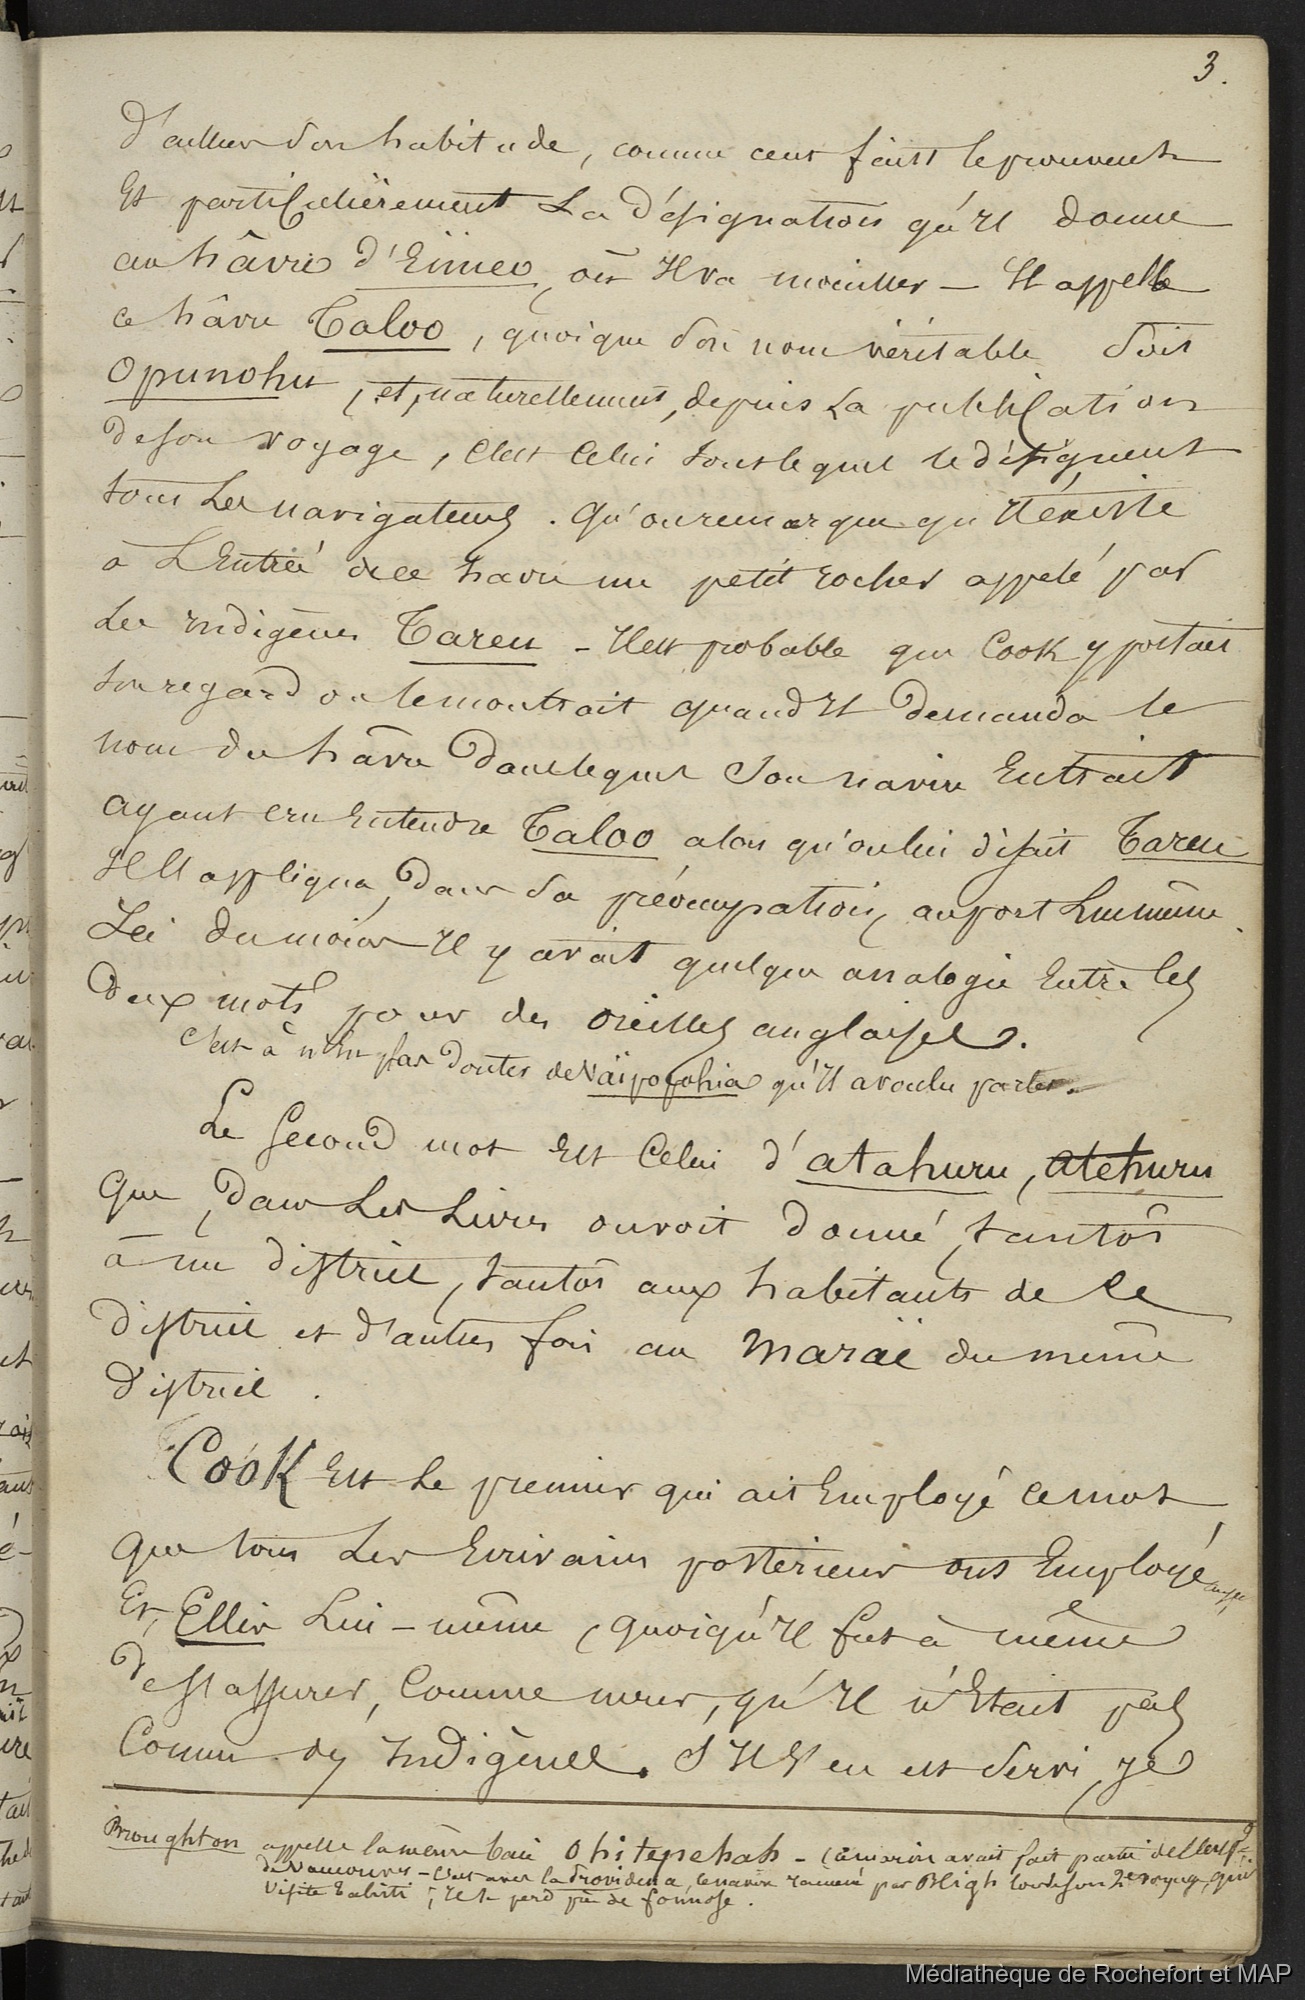 3.
d'ailleurs son habitude, comme cent faits le prouvent
Et particulièrement La désignation qu'Il donne
au hâvre d'Eimeo, où Il va mouiller – Il appelle
ce hâvre Taloo, quoique son nom véritable soit
Opunohu, et, naturellement, depuis La publication
de son voyage, c'est celui sous lequel le désignent
tous Les navigateurs. Qu'on remarque qu'Il éxiste
à L'Entrée de ce havre un petit rocher appelé par
Les Indigènes Tareu – Il est probable que Cook y portait
son regard ou le montrait quand Il demanda le
nom du hâvre dans lequel son navire Entrait
ayant cru Entendre Taloo alors qu'on lui disait Tareu
Il l'appliqua, dans sa préoccupation, au port Lui même.
Ici du moins Il y avait quelque analogie Entre les
deux mots pour des oreilles anglaises.
C'est à n'en pas douter de Vaïpopohia qu'Il a voulu parler.
Le second mot Est Celui d'atahuru, atehuru
Que, dans Les Livres on voit donné, tantôt
à un district, tantôt aux habitants de ce
district et d'autres fois au Maraë du même
district.
Cook Est Le premier qui ait Employé ce mot
que tous Les Ecrivains postérieurs ont Employé aussi,
Et, Ellis Lui-même, quoiqu'Il fut à même
de s'assurer, Comme nous, qu'Il n'Etait pas
Connu des Indigènes. S'Il s'en est servi, je
Broughton appelle la même baie Ohitepehah – Ce marin avait fait partie de l'expé-
de Vancouver – C'est avec la Providence, le navire ramené par Bligh lors de son 2e voyage, qu'il
visite Tahiti ; Il le perd près de formose.
Médiathèque de Rochefort et MAP